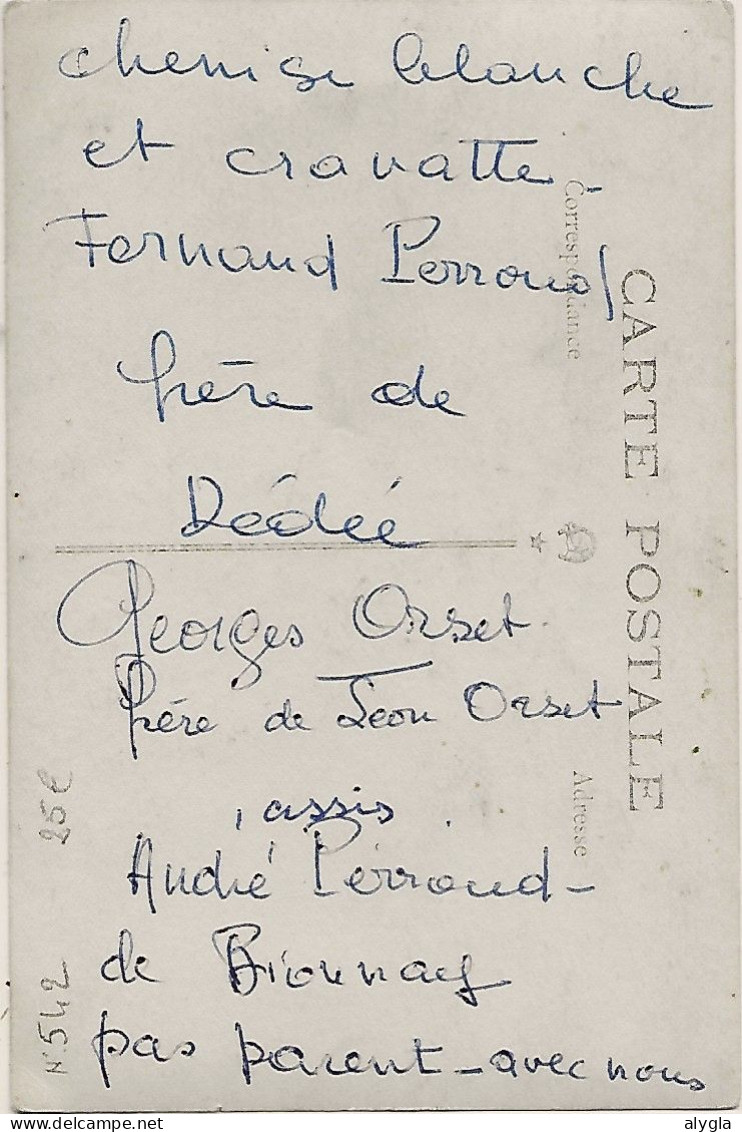 chemise blanche
et cravatte -
Fernand Perroud
frère de
Dédée
Georges Orset
frère de Léon Orset
, assis .
André Perroud -
de Bionnay
pas parent - avec nous
CARTE POSTALE
Correspondance
Adresse
25€
N°542
alygla